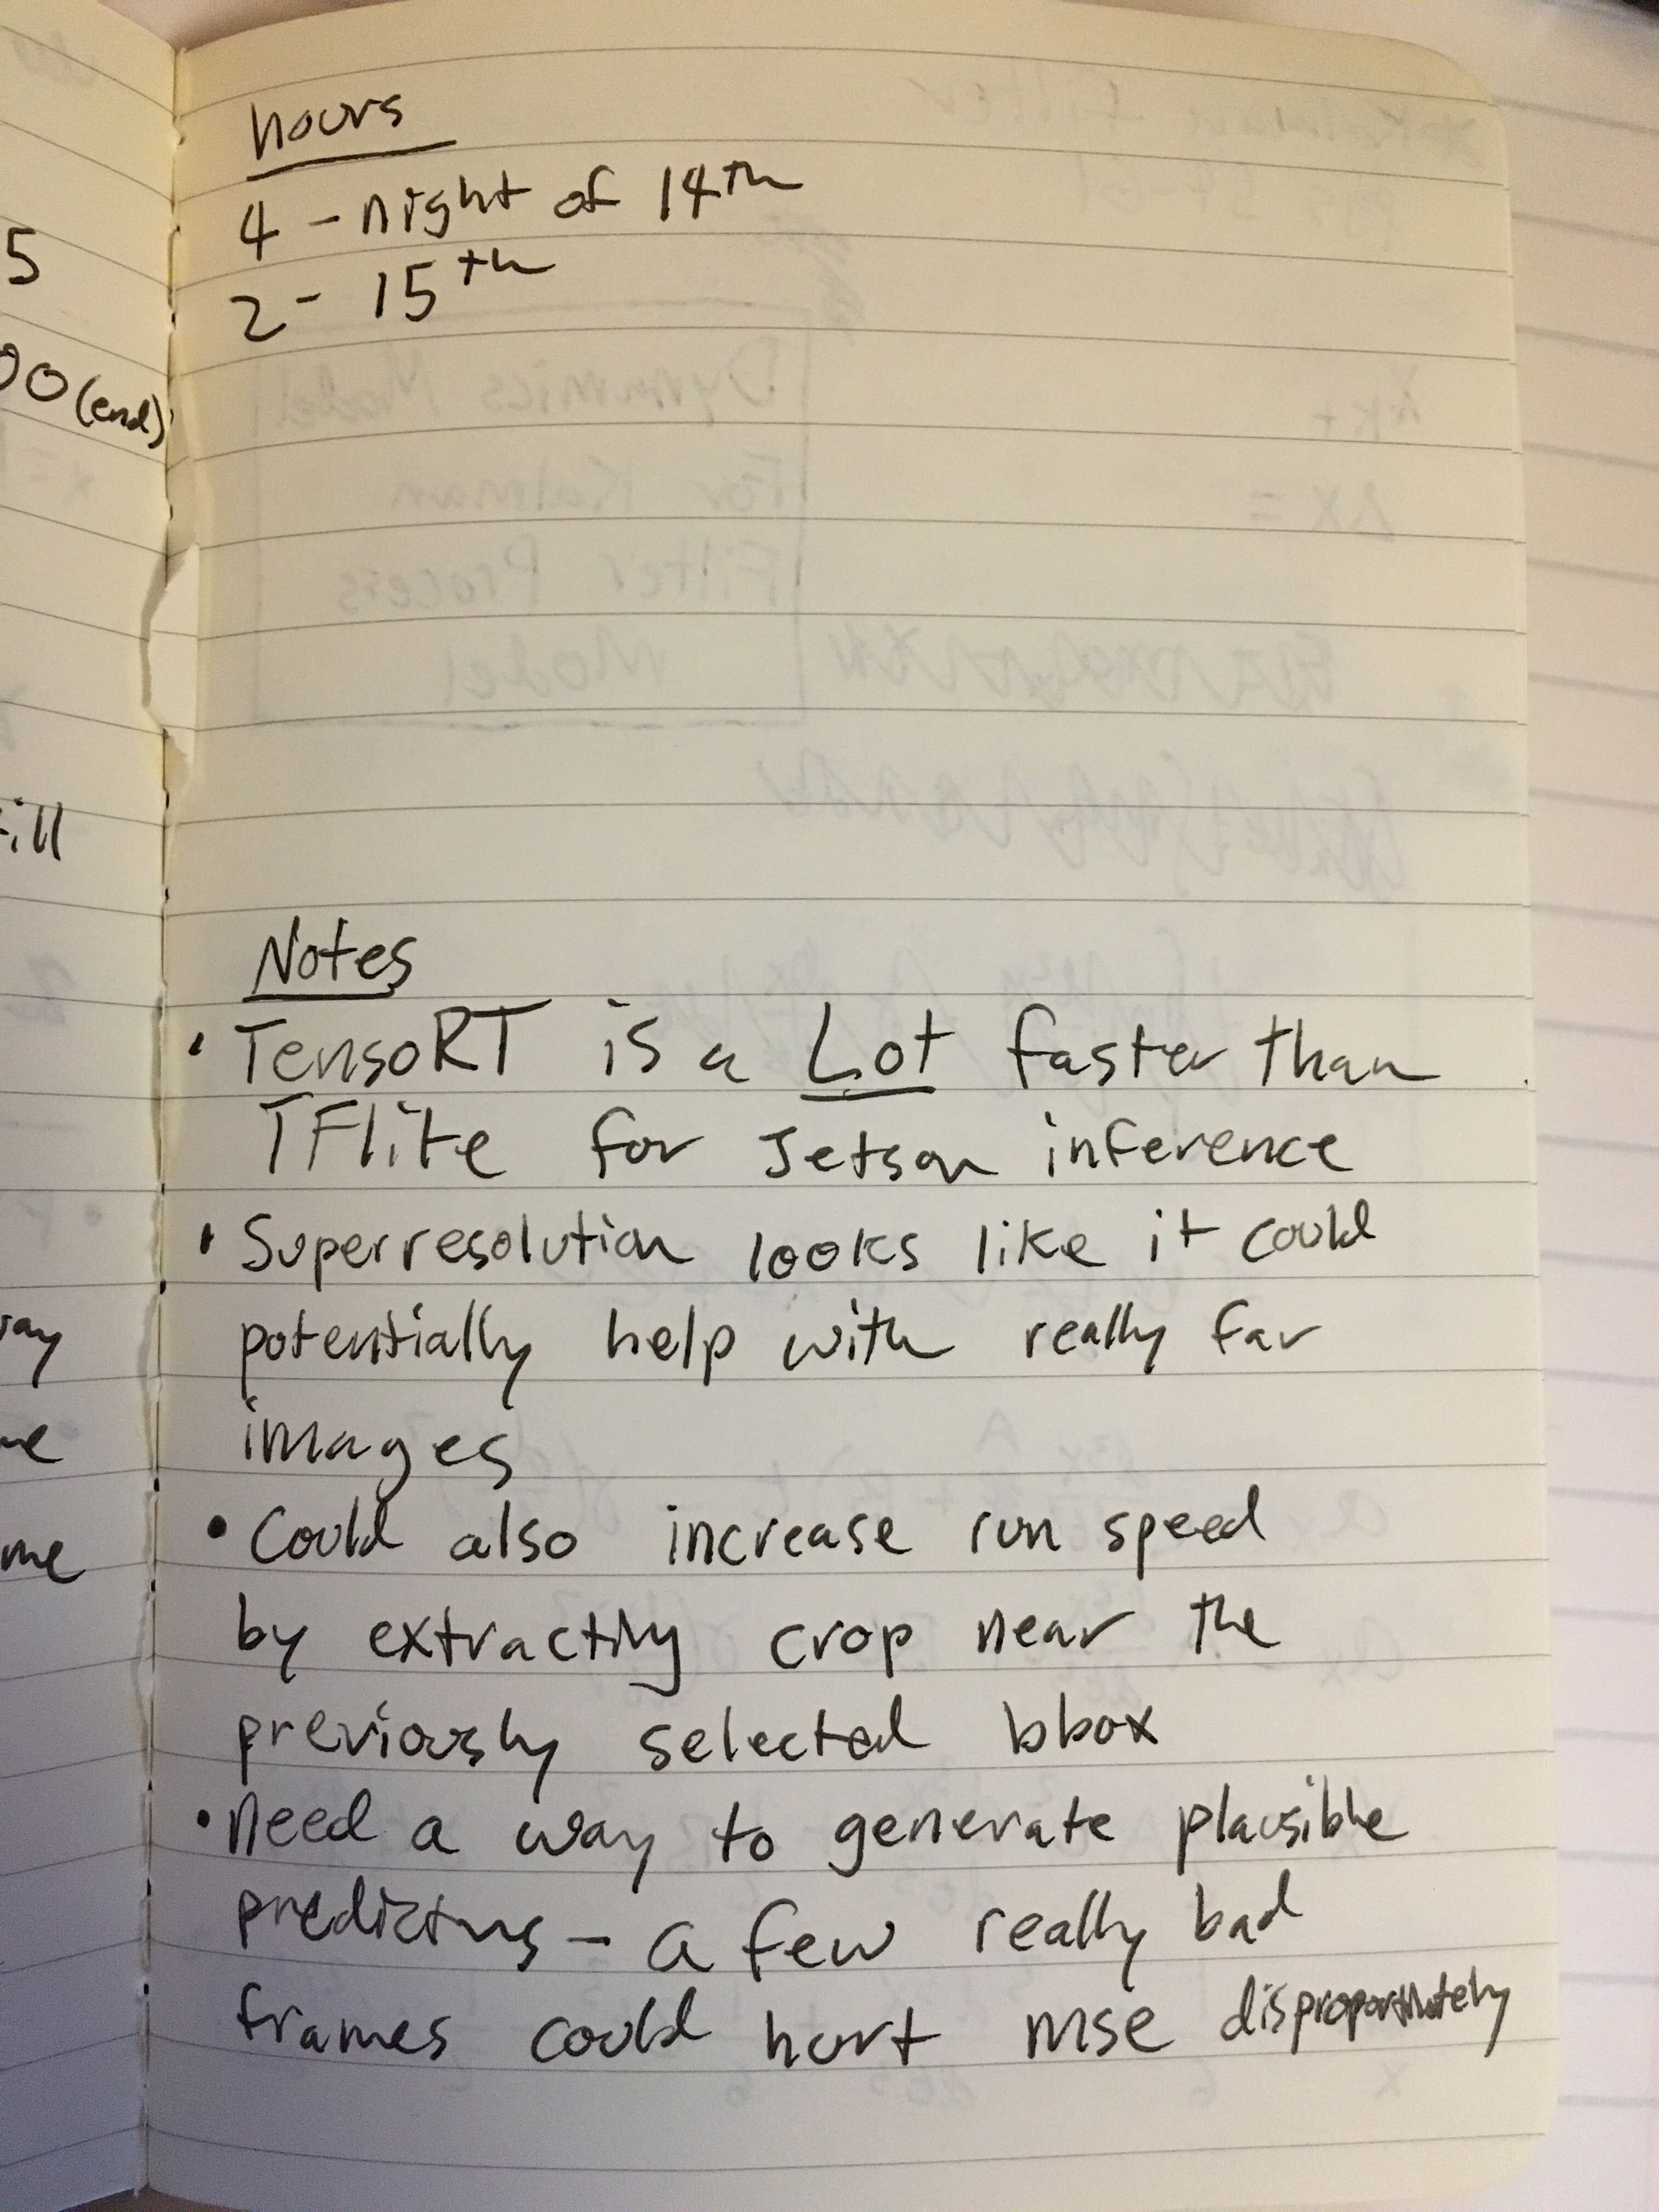 hours
4 - night of 14th
2 - 15th
5
00 (end)
ill
me
Notes
• TensoRT is a Lot faster than
TFlite for Jetson inference
• Superresolution looks like it could
potentially help with really far
images
• Could also increase run speed
by extracting crop near the
previously selected bbox
• need a way to generate plausible
predictions - a few really bad
frames could hurt mse disproportionately
Dynamics Model
For Kalman
Filter Process
Model
ΔX =